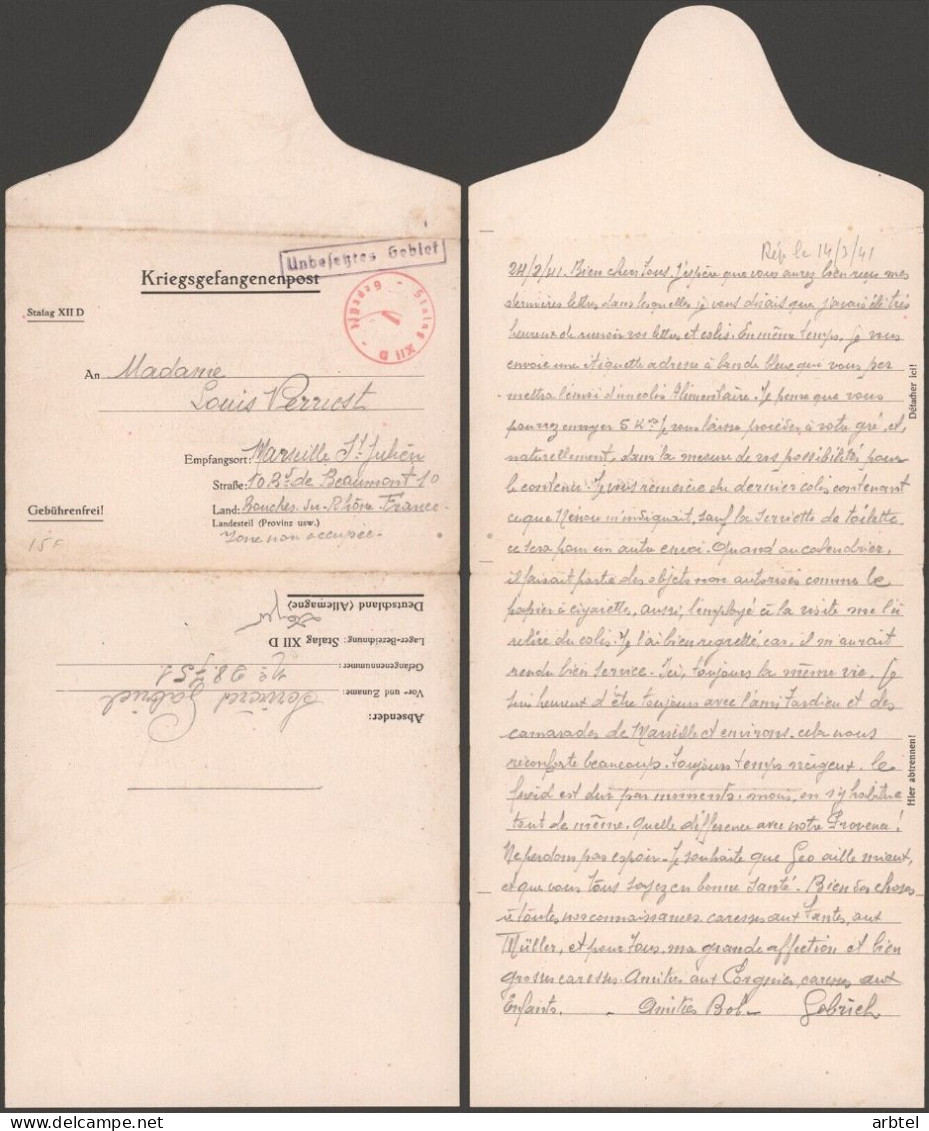 Unbesetztes Gebiet
Kriegsgefangenenpost
Stalag XII D
Stalag XII D - Geprüft -
An Madame
Louis Verriest
Empfangsort: Marseille St Julien
Straße: 10 Bd de Beaumont 10
Gebührenfrei!
Land: Bouches-du-Rhône France
Landesteil (Provinz usw.)
Zone non occupée.
15 F
Deutschland (Allemagne)
Lager-Bezeichnung: Stalag XII D
Gefangenennummer: N° 38.751
Vor- und Zuname: Gabriel
Absender:
Rép le 14/3/41
24/2/41. Bien chers Tous. J'espère que vous aurez bien reçu mes
dernières lettres dans lesquelles je vous disais que j'avais été très
heureux de recevoir vos lettres et colis. En même temps, je vous
envoie une étiquette adresse à bande bleue qui vous per
mettra l'envoi d'un colis Alimentaire. Je pense que vous
pourrez envoyer 5 K. Je vous laisse procéder à votre gré, et,
naturellement, dans la mesure de vos possibilités pour
le contenu. Je vous remercie du dernier colis contenant
ce que Ninou m'indiquait, sauf la serviette de toilette,
ce sera pour un autre envoi. Quand au calendrier,
il faisait partie des objets non autorisés comme le
papier à cigarette, aussi, l'employé à la visite me l'a
retiré du colis. Je l'ai bien regretté, car, il m'aurait
rendu bien service. Ici, toujours la même vie. Je
suis heureux d'être toujours avec l'ami Tardieu et des
camarades de Marseille et environs. cela nous
réconforte beaucoup. Toujours temps neigeux. le
froid est dur par moments, mais, on s'y habitue
tout de même. Quelle différence avec notre Provence!
Ne perdons pas espoir. Je souhaite que Géo aille mieux,
et que vous tous soyez en bonne santé. Bien des choses
à toutes nos connaissances. caresses aux Tantes, aux
Müller, et pour Tous, ma grande affection et bien
grosses caresses. Amitiés aux caresses aux
Enfants. - Amitiés Bob -
Détacher ici!
Hier abtrennen!
arbtel